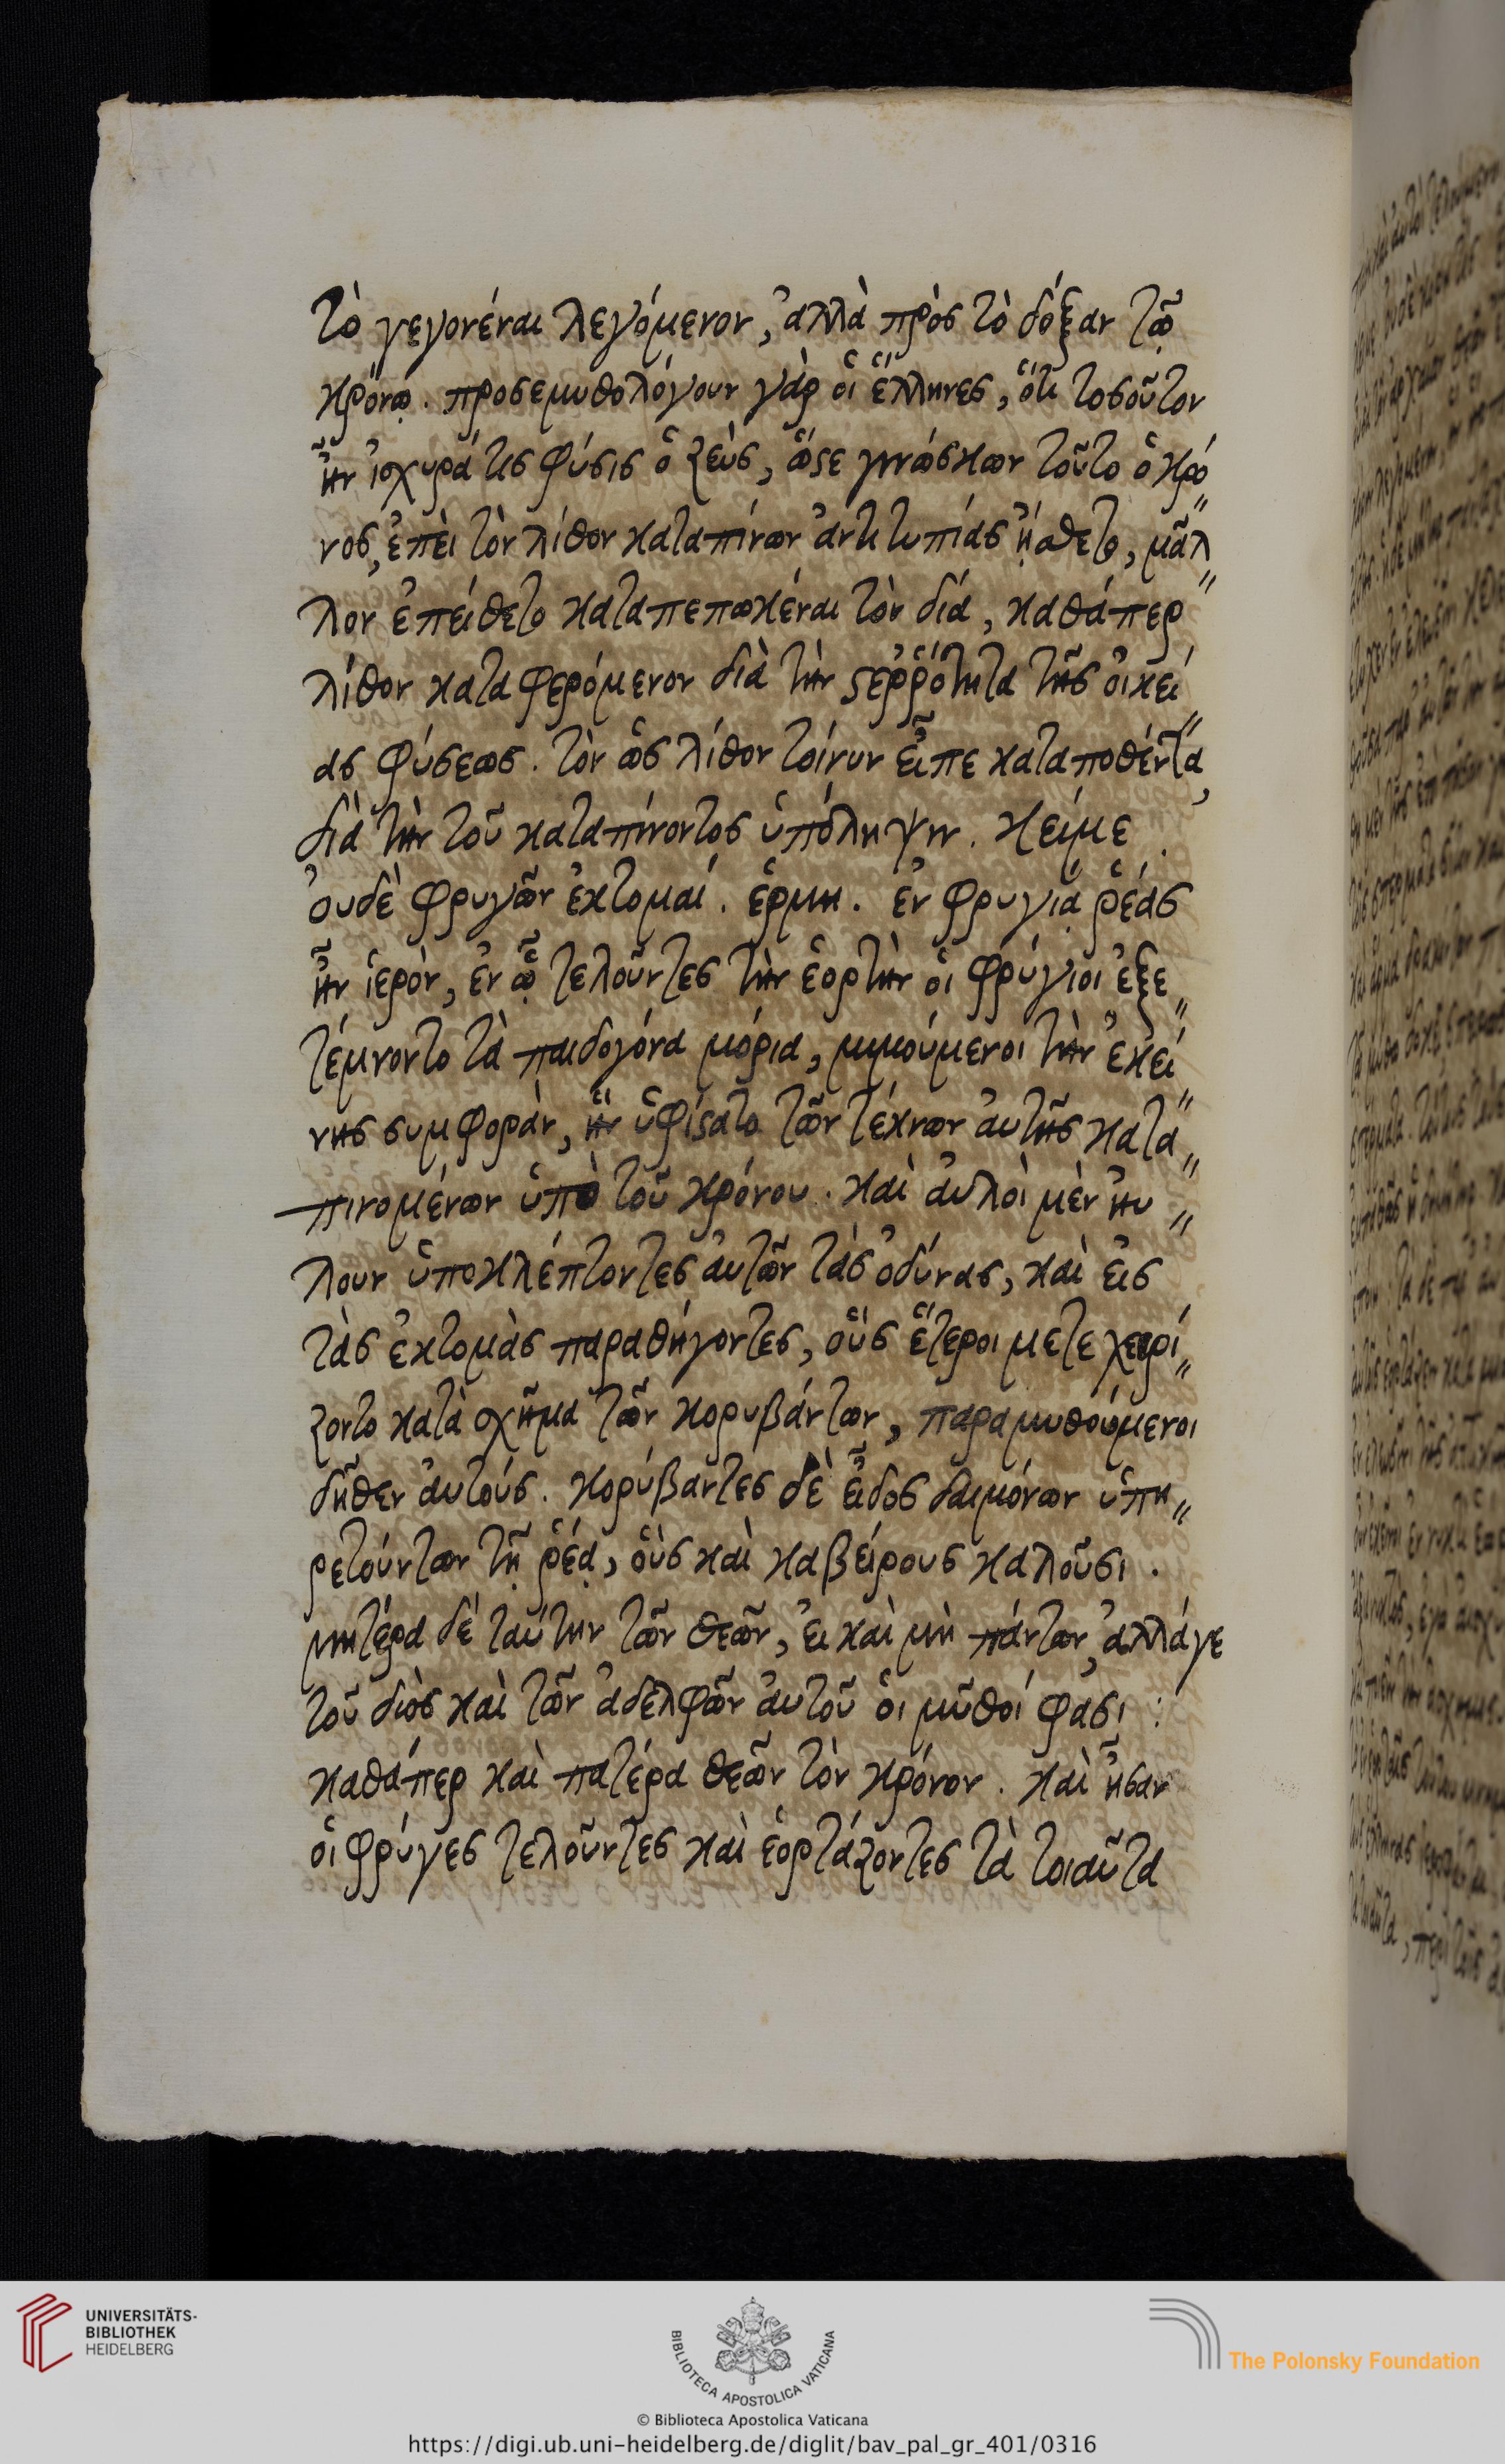 τὸ γεγονέναι λεγόμενον, ἀλλὰ πρὸς τὸ δόξαν τῷ
κρόνῳ. προσεμυθολόγουν γὰρ οἱ ἕλληνες, ὅτι τοσοῦτον
ἦν ἰσχυρά τις φύσις ὁ ζεὺς, ὥστε γινώσκων τοῦτο ὁ κρό
νος, ἐπεὶ τὸν λίθον καταπίνων ἀντιτυπίας ᾔσθετο, μᾶλ
λον ἐπείθετο καταπεπωκέναι τὸν δία, καθάπερ
λίθον καταφερόμενον διὰ τὴν στεῤῥότητα τῆς οἰκεί
ας φύσεως. τὸν ὡς λίθον τοίνυν εἶπε καταποθέντα,
διὰ τὴν τοῦ καταπίνοντος ὑπόληψιν. κείμε.
οὐδὲ φρυγῶν ἐκτομαί. ἑρμη. ἐν φρυγίᾳ ῥέας
ἦν ἱερὸν, ἐν ᾧ τελοῦντες τὴν ἑορτὴν οἱ φρύγιοι ἐξε
τέμνοντο τὰ παιδογόνα μόρια, μιμούμενοι τὴν ἐκεί
νης συμφορὰν, ἣν ὑφίστατο τῶν τέκνων αὐτῆς κατα
πινομένων ὑπὸ τοῦ κρόνου. καὶ αὐλοὶ μὲν ηὔ
λουν ὑποκλέπτοντες αὐτῶν τὰς ὀδύνας, καὶ εἰς
τὰς ἐκτομὰς παραθήγοντες, οὓς ἕτεροι μετεχειρί
ζοντο κατὰ σχῆμα τῶν κορυβάντων, παραμυθούμενοι
δῆθεν αὐτούς. κορύβαντες δὲ εἶδος δαιμόνων ὑπη
ρετούντων τῇ ῥέᾳ, οὓς καὶ καβείρους καλοῦσι.
μητέρα δὲ ταύτην τῶν θεῶν, εἰ καὶ μὴ πάντων, ἀλλάγε
τοῦ διὸς καὶ τῶν ἀδελφῶν αὐτοῦ οἱ μῦθοί φασι:
καθάπερ καὶ πατέρα θεῶν τὸν κρόνον. καὶ ἦσαν
οἱ φρύγες τελοῦντες καὶ ἑορτάζοντες τὰ τοιαῦτα
UNIVERSITÄTS-
BIBLIOTHEK
HEIDELBERG
BIBLIOTECA APOSTOLICA VATICANA
The Polonsky Foundation
© Biblioteca Apostolica Vaticana
https://digi.ub.uni-heidelberg.de/diglit/bav_pal_gr_401/0316